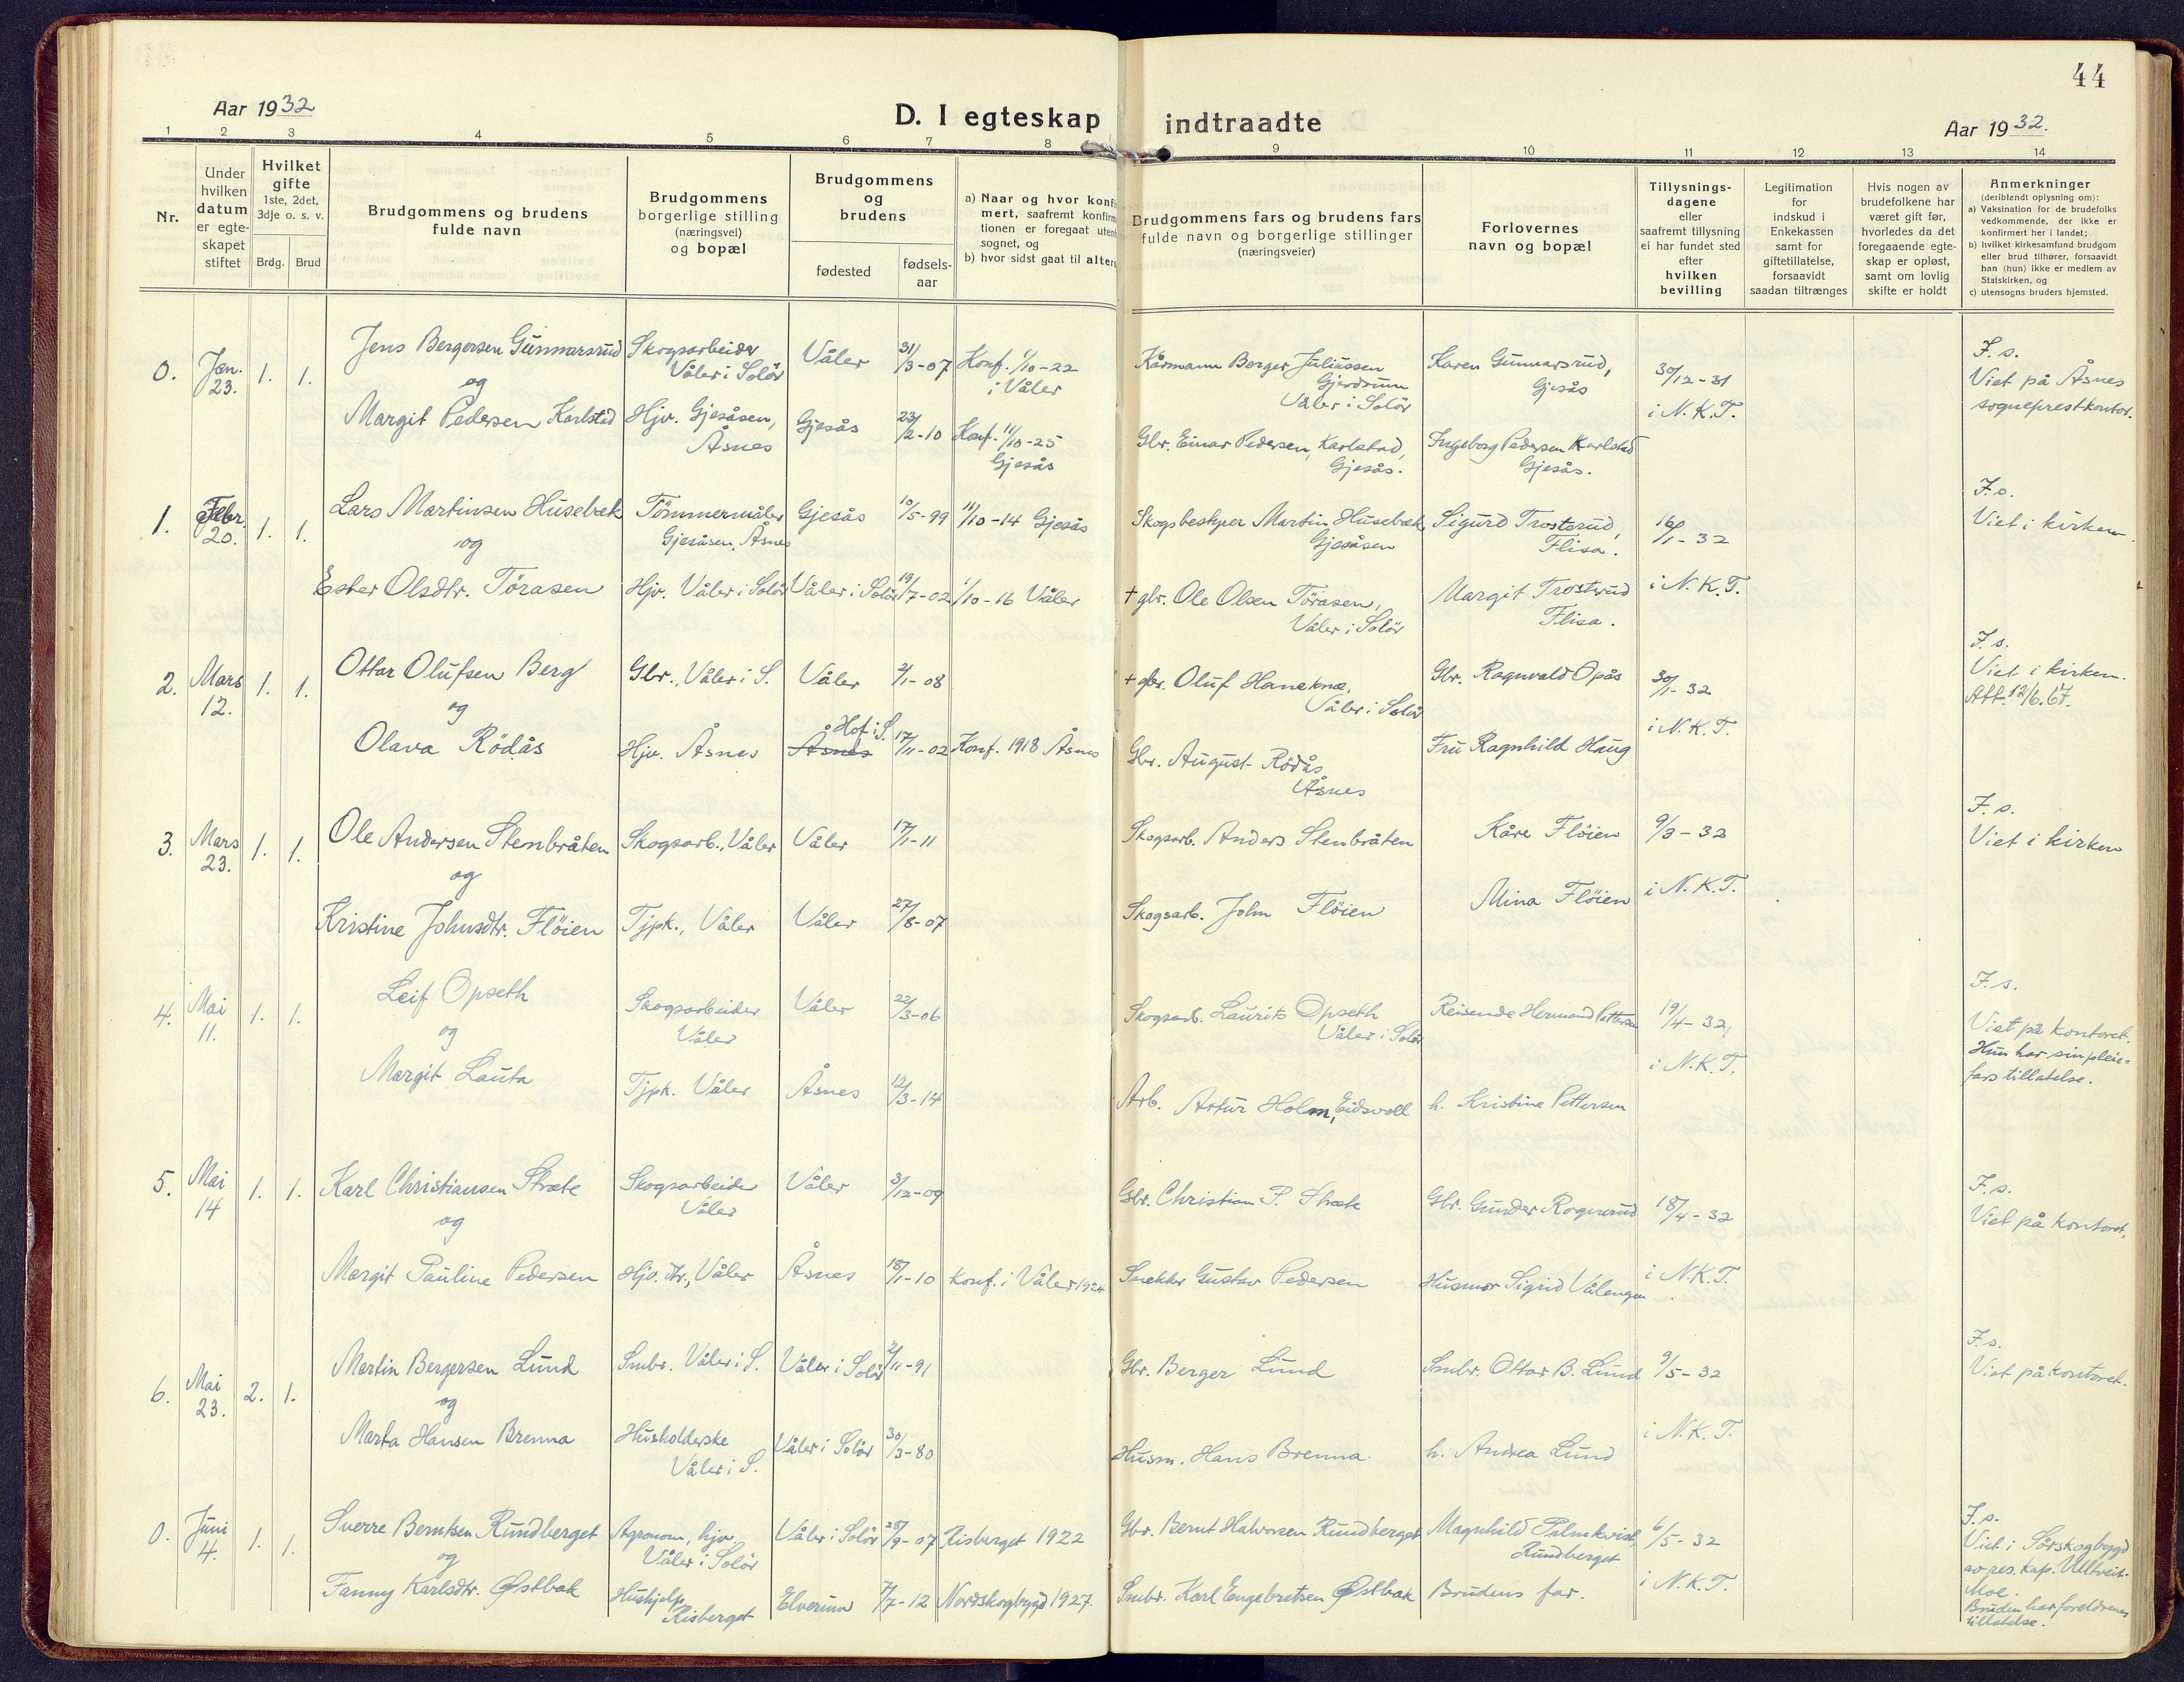 44
Aar 1932
D. I egteskap indtraadte
Aar 1932.
1 2 3 4 5 6 7 8 9 10 11 12 13 14
Nr.
Under hvilken datum er egteskapet stiftet
Hvilket gifte 1ste, 2det, 3dje o. s. v.
Brdg. Brud
Brudgommens og brudens fulde navn
Brudgommens borgerlige stilling (næringsvei) og bopæl
Brudgommens og brudens
fødested
fødsels-aar
a) Naar og hvor konfirmert, saafremt konfirmationen er foregaat utenfor sognet, og
b) hvor sidst gaat til alters
Brudgommens fars og brudens fars fulde navn og borgerlige stillinger (næringsveier)
Forlovernes navn og bopæl
Tillysnings-dagene eller saafremt tillysning ei har fundet sted efter hvilken bevilling
Legitimation for indskud i Enkekassen samt for giftetillatelse, forsaavidt saadan tiltrænges
Hvis nogen av brudefolkene har været gift før, hvorledes da det foregaaende egteskap er opløst, samt om lovlig skifte er holdt
Anmerkninger (deriblandt oplysning om):
a) Vaksination for de brudefolks vedkommende, der ikke er konfirmert her i landet;
b) hvilket kirkesamfund brudgom eller brud tilhører, forsaavidt han (hun) ikke er medlem av Statskirken, og
c) utensogns bruders hjemsted.
0. Jan. 23. 1. 1. Jens Bergersen Gunnarsrud Skogsarbeider Våler i Solør Våler 31/3-07 Konf. 1/10-22 i Våler Kårmann Berger Juliussen Gjerdrum Våler i Solör Karen Gunnarsrud, Gjesås 30/12-31 F. s. Viet på Åsnes sogneprestkontor.
og
Margit Pedersen Karlstad Hjv. Gjesåsen, Åsnes Gjesås 23/2-10 Konf. 11/10-25 Gjesås Gbr. Einar Pedersen, Karlstad, Gjesås. Ingeborg Pedersen Karlstad Gjesås. i N.K.T.
1. Febr. 20. 1. 1. Lars Martinsen Husebæk Tömmermåler Gjesåsen, Åsnes Gjesås 10/5-99 11/10-14 Gjesås Skogsbestyrer Martin Husebæk Gjesåsen Sigurd Trosterud, Flisa. 16/1-32 F. s. Viet i kirken.
og
Ester Olsdtr. Törasen Hjv. Våler i Solör Våler i Solör 19/7-02 1/10-16 Våler + gbr. Ole Olsen Törasen, Våler i Solör Margit Trosterud Flisa. i N.K.T.
2. Mars 12. 1. 1. Ottar Olufsen Berg Gbr., Våler i S. Våler 2/1-08 + gbr. Oluf Haneknæ, Våler i Solör Gbr. Ragnvald Opås 30/1-32 F. s. Viet i kirken. Att. 12/6.67.
og
Olava Rödås Hjv. Åsnes Åsnes Hof i S. 17/11-02 Konf. 1918 Åsnes Gbr. August Rödås Åsnes Fru Ragnhild Haug i N.K.T.
3. Mars 23. 1. 1. Ole Andersen Stenbråten Skogsarb., Våler Våler 17/1-11 Skogsarb. Anders Stenbråten Kåre Flöien 9/3-32 F. s. Viet i kirken
og
Kristine Johnsdtr. Flöien Tjpk., Våler Våler 27/8-07 Skogsarb. John Flöien Mina Flöien i N.K.T.
4. Mai 11. 1. 1. Leif Opseth Skogsarbeider Våler Våler 22/3-06 Skogsarb. Laurits Opseth Våler i Solör Reisende Hermand Pettersen 19/4-32 F. s. Viet på kontoret. Hun har sin pleiefars tillatelse.
og
Margit Lauta Tjpk. Våler Åsnes 12/3-14 Arb. Artur Holm, Eidsvoll h. Kristine Pettersen i N.K.T.
5. Mai 14 1. 1. Karl Christiansen Stræte Skogsarbeider Våler Våler 3/12-09 Gbr. Christian P. Stræte Gbr. Gunder Rognerud 18/4-32 F. s. Viet på kontoret.
og
Margit Pauline Pedersen Hjv. dtr., Våler Åsnes 18/1-10 Konf. i Våler 1924 Snekker Gustav Pedersen Husmor Sigrid Vålengen i N.K.T.
6. Mai 23. 2. 1. Martin Bergersen Lund Smbr. Våler i S. Våler i Solör 2/11-91 Gbr. Berger Lund Smbr. Ottar B. Lund 9/5-32 F. s. Viet på kontoret.
og
Marta Hansen Brenna Husholderske Våler i S. Våler i Solör 30/3-80 Husm. Hans Brenna. h. Andrea Lund i N.K.T.
0. Juni 4. 1. 1. Sverre Berntsen Rundberget Agronom, hjv. Våler i Solör Våler i Solör 28/9-07 Risberget 1922 Gbr. Bernt Halvorsen Rundberget Magnhild Palmkvist, Rundberget 6/5-32 F. s. Viet i Sörskogbygd av res. kap. Ulltveit-Moe. Bruden har foreldrenes tillatelse.
og
Fanny Karlsdtr. Østbak Hushjelp Risberget Elverum 7/7-12 Nordskogbygd 1927. Smbr. Karl Engebretsen Østbak Brudens far. i N.K.T.